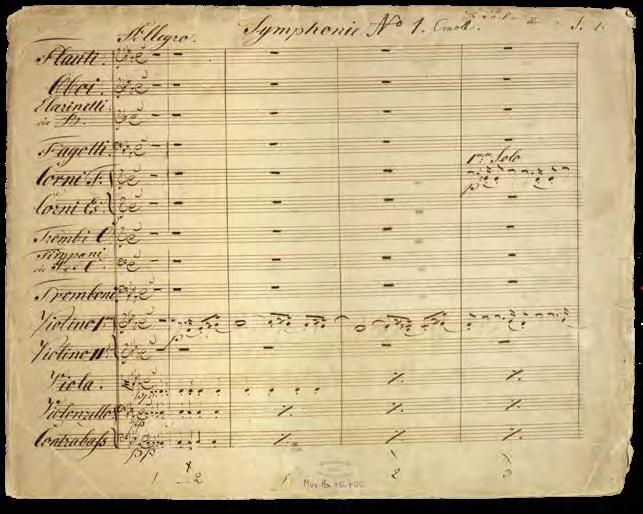 Allegro. Symphonie No 1. Cmoll. S. 1.
Flauti.
Oboi.
Clarinetti
in B.
Fagotti.
Corni F.
1mo Solo
p
Corni Es.
Trombi C.
Timpani
in
Tromboni
Violino I.
p
Violino II.
Viola.
pp
Violonzello
pp
Contrabaß
pp
1 2 1 2 3
Mus. Hs. 40.400